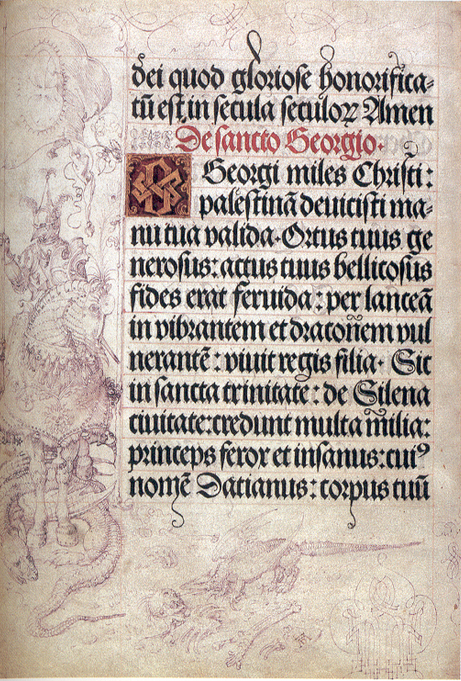 dei quod gloriose honorifica-
tũ est, in secula seculoꝝ Amen
De sancto Georgio.
Georgi miles Christi:
palestinã deuicisti ma-
nu tua valida. Ortus tuus ge
nerosus: actus tuus bellicosus
fides erat feruida: per lanceã
in vibrantem et draconem vul
nerantẽ: viuit regis filia. Sit
in sancta trinitate: de Silena
ciuitate: credunt multa milia:
princeps ferox et insanus: cuiꝰ
nomẽ Datianus: corpus tuũ